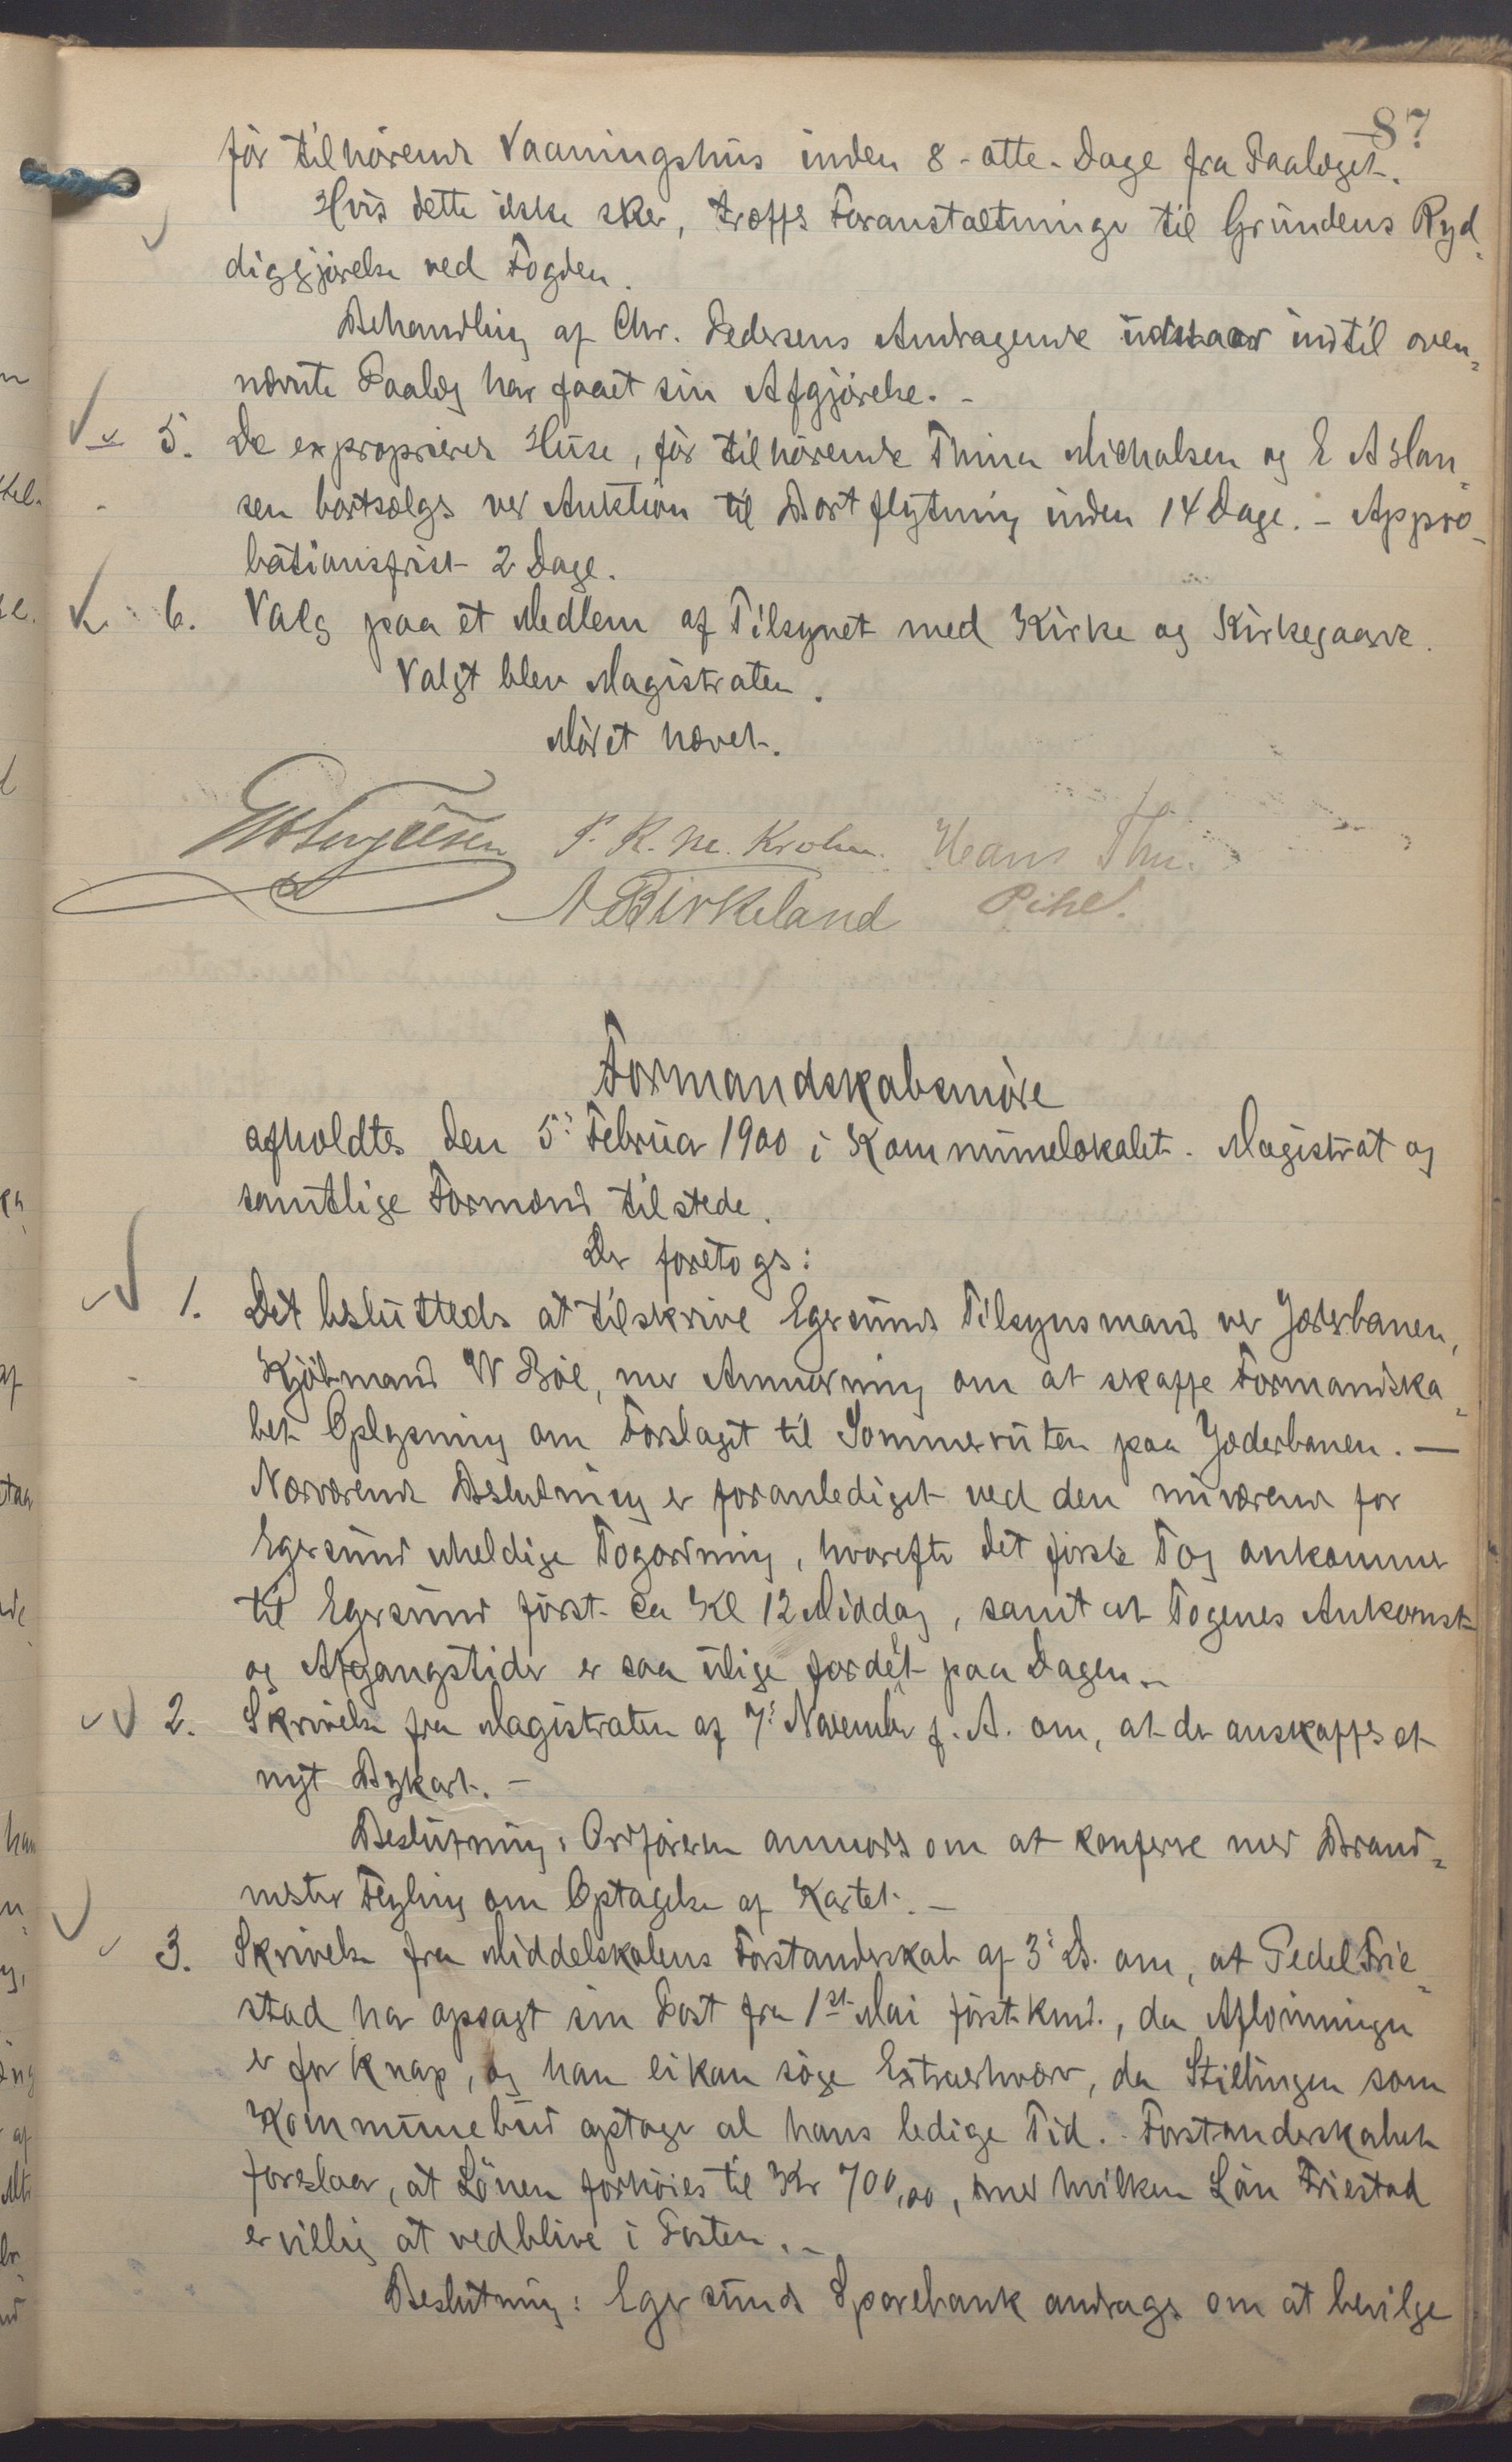 87
før tilhørende Vaaningshus inden 8-otte-Dage fra Paalæget.
Hvis dette ikke sker, træffes Foranstaltninger til Grundens Ryd-
diggjørelse ved Fogden.
Behandling af Chr. Pedersens Andragende udstaar indtil oven-
nævnte Paalæg har faaet sin Afgjørelse. -
5. De exproprierede Huse, før tilhørende Thina Michalsen og E Aslan-
sen bortsælges ved Auktion til Bortflytning inden 14 Dage. - Appro-
bationsfrist 2 Dage.
6. Valg paa et Medlem af Tilsynet med Kirke og Kirkegaard.
Valgt blev Magistraten.
Mødet hævet.
P. R. M. Krohn. Hans Thu.
A Birkeland Pihl.
Formandskabsmøde
afholdtes den 5' Februar 1900 i Kommunelokalet. Magistrat og
samtlige Formænd tilstede.
Der foretoges:
1. Det besluttedes at tilskrive Egersunds Tilsynsmand ved Jæderbanen,
Kjøbmand W Bøe, med Anmodning om at skaffe Formandska-
bet Oplysning om Forslaget til Sommerruten paa Jæderbanen. -
Nærværende Beslutning er foranlediget ved den nuværende for
Egersund uheldige Togordning, hvorefter det første Tog ankommer
til Egersund først ca Kl 12 Middag, samt at Togenes Ankomst
og Afgangstider er saa ulige fordelt paa Dagen. -
2. Skrivelse fra Magistraten af 7' November f. A. om, at der anskaffes et
nyt Bykart. -
Beslutning: Ordføreren anmodes om at konferere med Brand-
mester Feyling om Optagelse af Kartet. -
3. Skrivelse fra Middelskolens Forstanderskab af 3' ds. om, at Pedel Frie-
stad har opsagt sin Post fra 1st Mai førstkmd., da Aflønningen
er for knap, og han ei kan søge Extraerhverv, da Stillingen som
Kommunebud optager al hans ledige Tid. Forstanderskabet
foreslaar, at Lønnen forhøies til Kr 700,00, med hvilken Løn Friestad
er villig at vedblive i Posten. -
Beslutning: Egersunds Sparebank andrages om at bevilge